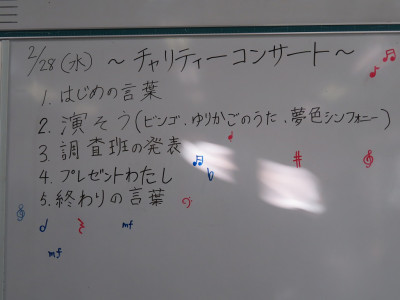 2/28(水) ～チャリティーコンサート～
1. はじめの言葉
2. 演そう(ビンゴ、ゆりかごのうた、夢色シンフォニー)
3. 調査班の発表
4. プレゼントわたし
5. 終わりの言葉
mf
mf